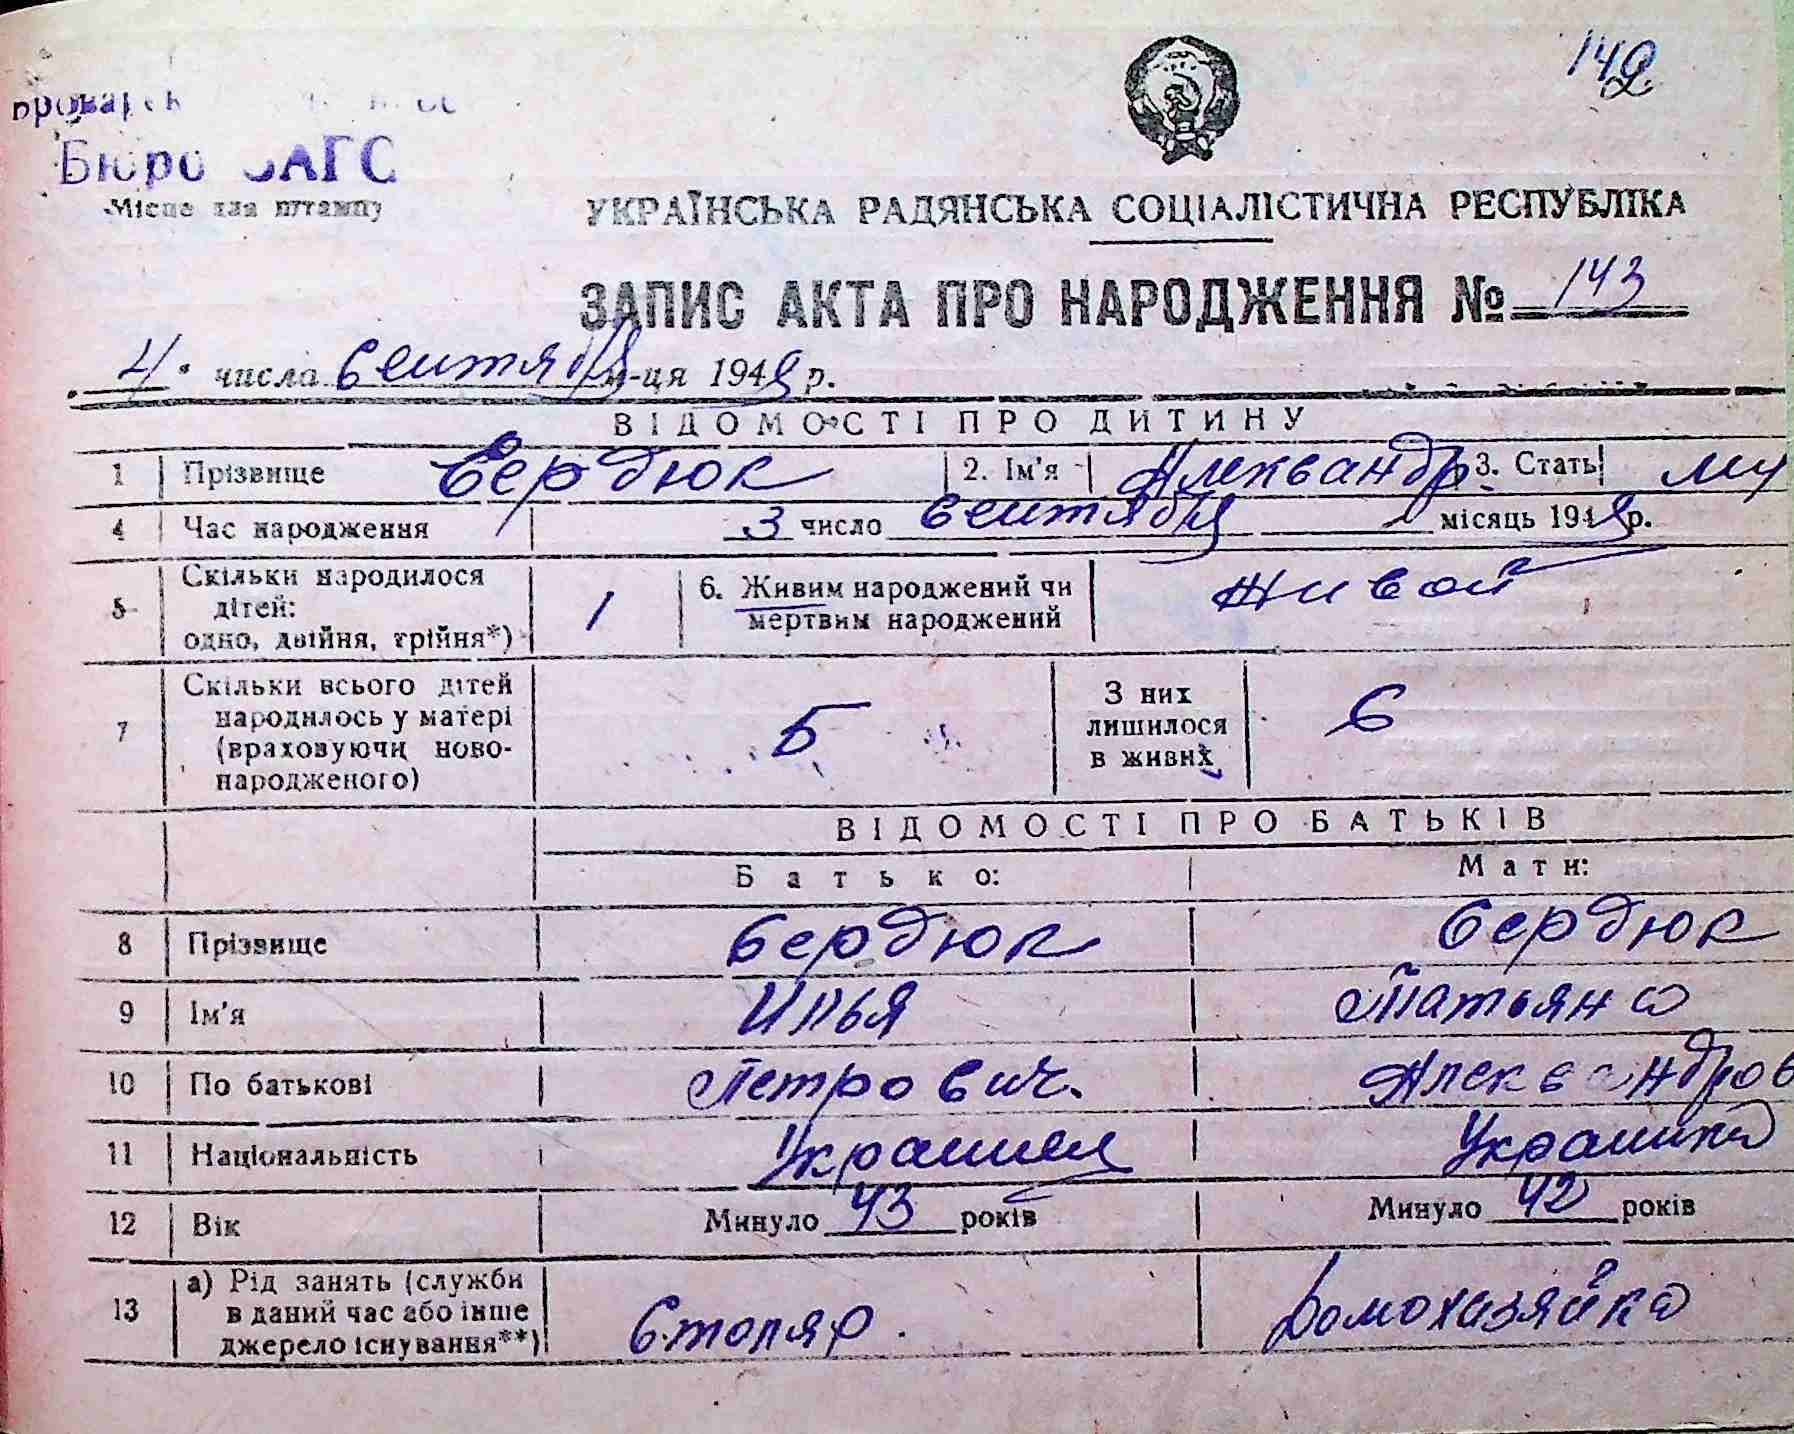 142
Бюро ЗАГС
Місце для штампу
УКРАЇНСЬКА РАДЯНСЬКА СОЦІАЛІСТИЧНА РЕСПУБЛІКА
ЗАПИС АКТА ПРО НАРОДЖЕННЯ № 143
„4" числа сентября м-ця 1948 р.
ВІДОМОСТІ ПРО ДИТИНУ
1 Прізвище Сердюк 2. Ім'я Александр 3. Стать му
4 Час народження 3 число сентября місяць 1948 р.
5 Скільки народилося дітей: одно, двійня, трійня*) 1 6. Живим народжений чи мертвим народжений живой
7 Скільки всього дітей народилось у матері (враховуючи новонародженого) 5 З них лишилося в живих 6
ВІДОМОСТІ ПРО БАТЬКІВ
Батько: Мати:
8 Прізвище Сердюк Сердюк
9 Ім'я Илья Татьяна
10 По батькові Петрович. Александров
11 Національність Украинец Украинка
12 Вік Минуло 43 років Минуло 42 років
13 а) Рід занять (служби в даний час або інше джерело існування**) Столяр. Домохазяйка